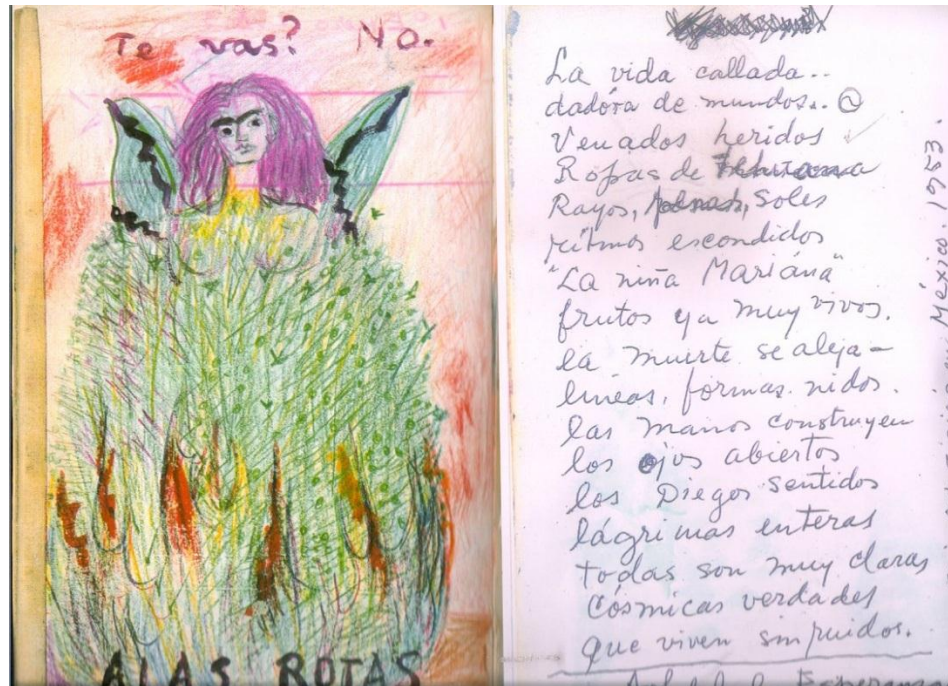 Te vas? No.
ALAS ROTAS
La vida callada..
dadóra de mundos..
Venados heridos
Ropas de Tehuana
Rayos, penas, Soles
ritmos escondidos
"La niña Mariána"
frutos ya muy vivos.
la muerte se aleja –
lineas, formas. nidos.
las manos construyen
los ojos abiertos
los Diegos sentidos
lágrimas enteras
todas son muy claras
Cósmicas verdades
que viven sin ruidos.
Esperanza
México. 1953.